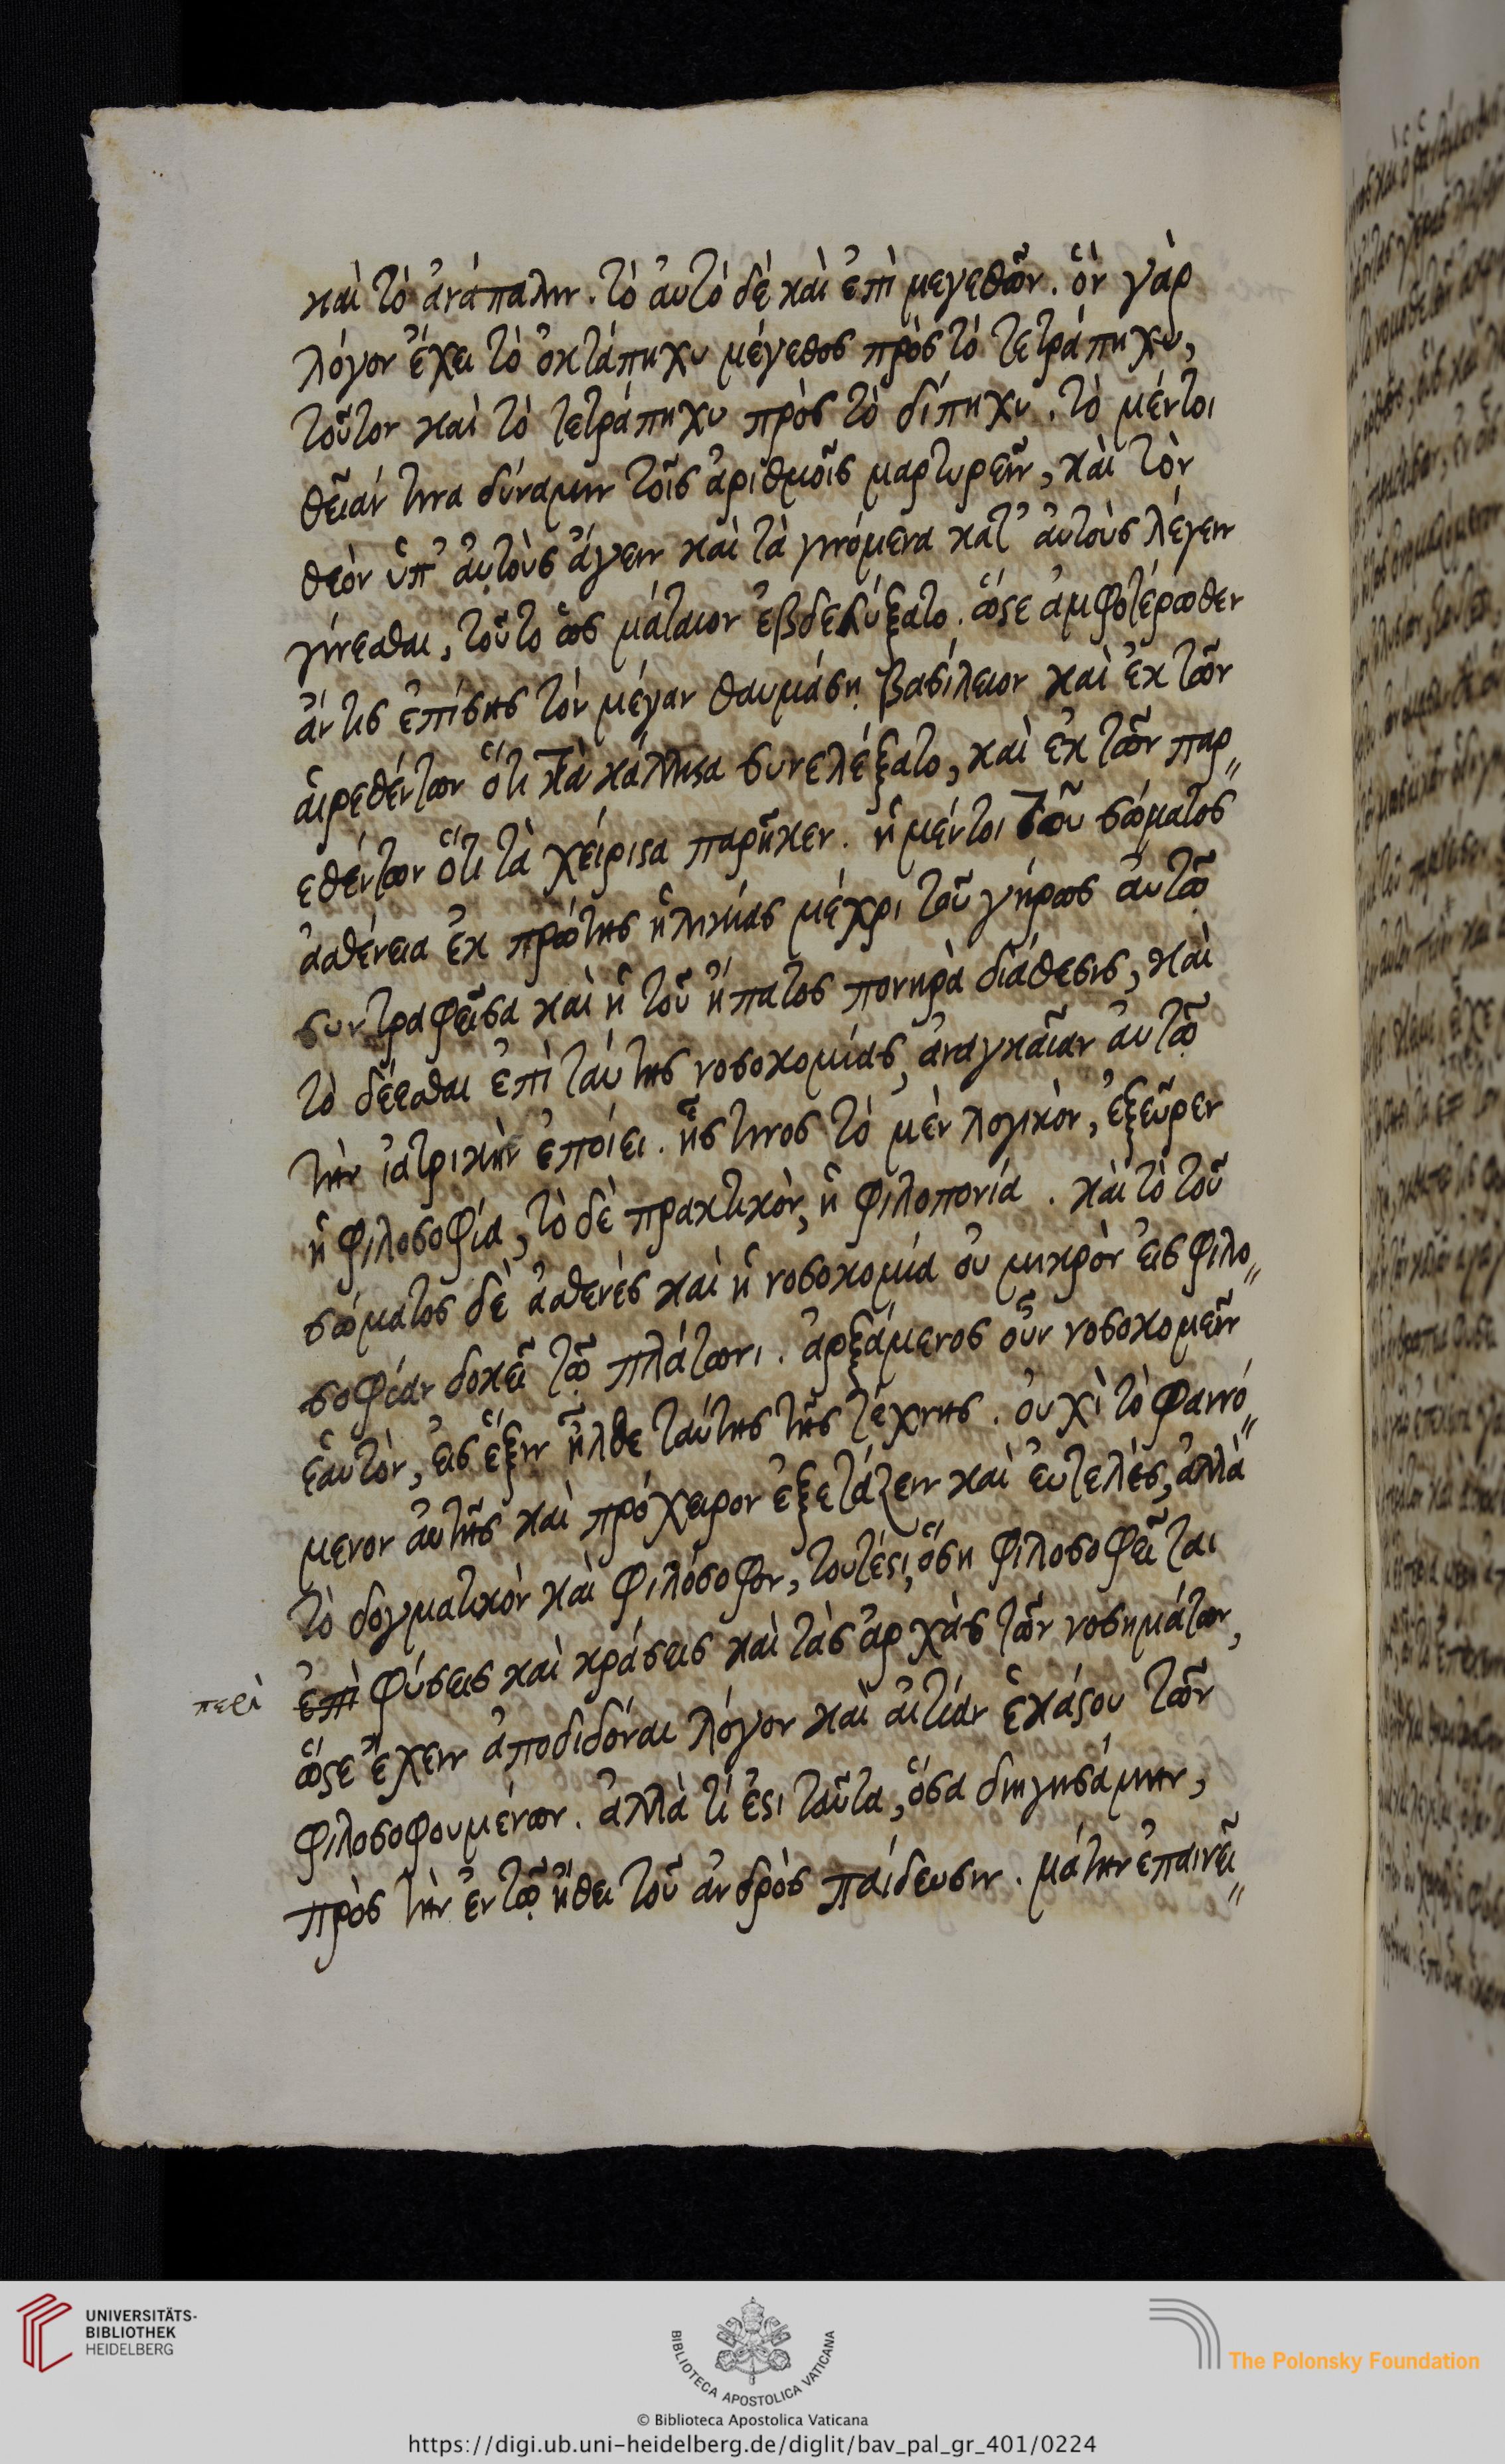 καὶ τὸ ἀνάπαλιν. τὸ αὐτὸ δὲ καὶ ἐπὶ μεγεθῶν. ὃν γὰρ
λόγον ἔχει τὸ ὀκτάπηχυ μέγεθος πρὸς τὸ τετράπηχυ,
τοῦτον καὶ τὸ τετράπηχυ πρὸς τὸ δίπηχυ. τὸ μέντοι
θείαν τινα δύναμιν τοῖς ἀριθμοῖς μαρτυρεῖν, καὶ τὸν
θεὸν ὑπ' αὐτοὺς ἄγειν καὶ τὰ γινόμενα κατ' αὐτοὺς λέγειν
γίνεσθαι, τοῦτο ὡς μάταιον ἐβδελύξατο. ὥστε ἀμφοτέρωθεν
ἄν τις ἐπίσης τὸν μέγαν θαυμάσῃ βασίλειον καὶ ἐκ τῶν
αἱρεθέντων ὅτι τὰ κάλλιστα συνελέξατο, καὶ ἐκ τῶν παρ„
εθέντων ὅτι τὰ χείριστα παρῆκεν. ἡ μέντοι τοῦ σώματος
ἀσθένεια ἐκ πρώτης ἡλικίας μέχρι τοῦ γήρως αὐτῷ
συντραφεῖσα καὶ ἡ τοῦ ἥπατος πονηρὰ διάθεσις, καὶ
τὸ δέεσθαι ἐπὶ ταύτης νοσοκομίας, ἀναγκαίαν αὐτῷ
τὴν ἰατρικὴν ἐποίει. ἧς τινος τὸ μὲν λογικὸν, ἐξεῦρεν
ἡ φιλοσοφία, τὸ δὲ πρακτικὸν, ἡ φιλοπονία. καὶ τὸ τοῦ
σώματος δὲ ἀσθενὲς καὶ ἡ νοσοκομία οὐ μικρὸν εἰς φιλο„
σοφίαν δοκεῖ τῷ πλάτωνι. ἀρξάμενος οὖν νοσοκομεῖν
ἑαυτὸν, εἰς ἕξιν ἦλθε ταύτης τῆς τέχνης. οὐχὶ τὸ φαινό„
μενον αὐτῆς καὶ πρόχειρον ἐξετάζειν καὶ εὐτελὲς, ἀλλὰ
τὸ δογματικὸν καὶ φιλόσοφον, τουτέστι, ὅση φιλοσοφεῖται
περὶ ἐπὶ φύσεις καὶ κράσεις καὶ τὰς ἀρχὰς τῶν νοσημάτων,
ὥστε ἔχειν ἀποδιδόναι λόγον καὶ αἰτίαν ἑκάστου τῶν
φιλοσοφουμένων. ἀλλὰ τί ἐστι ταῦτα, ὅσα διηγησάμην,
πρὸς τὴν ἐν τῷ ἤθει τοῦ ἀνδρὸς παίδευσιν. μάτην ἐπαινεῖ„
UNIVERSITÄTS-
BIBLIOTHEK
HEIDELBERG
BIBLIOTECA APOSTOLICA VATICANA
The Polonsky Foundation
© Biblioteca Apostolica Vaticana
https://digi.ub.uni-heidelberg.de/diglit/bav_pal_gr_401/0224